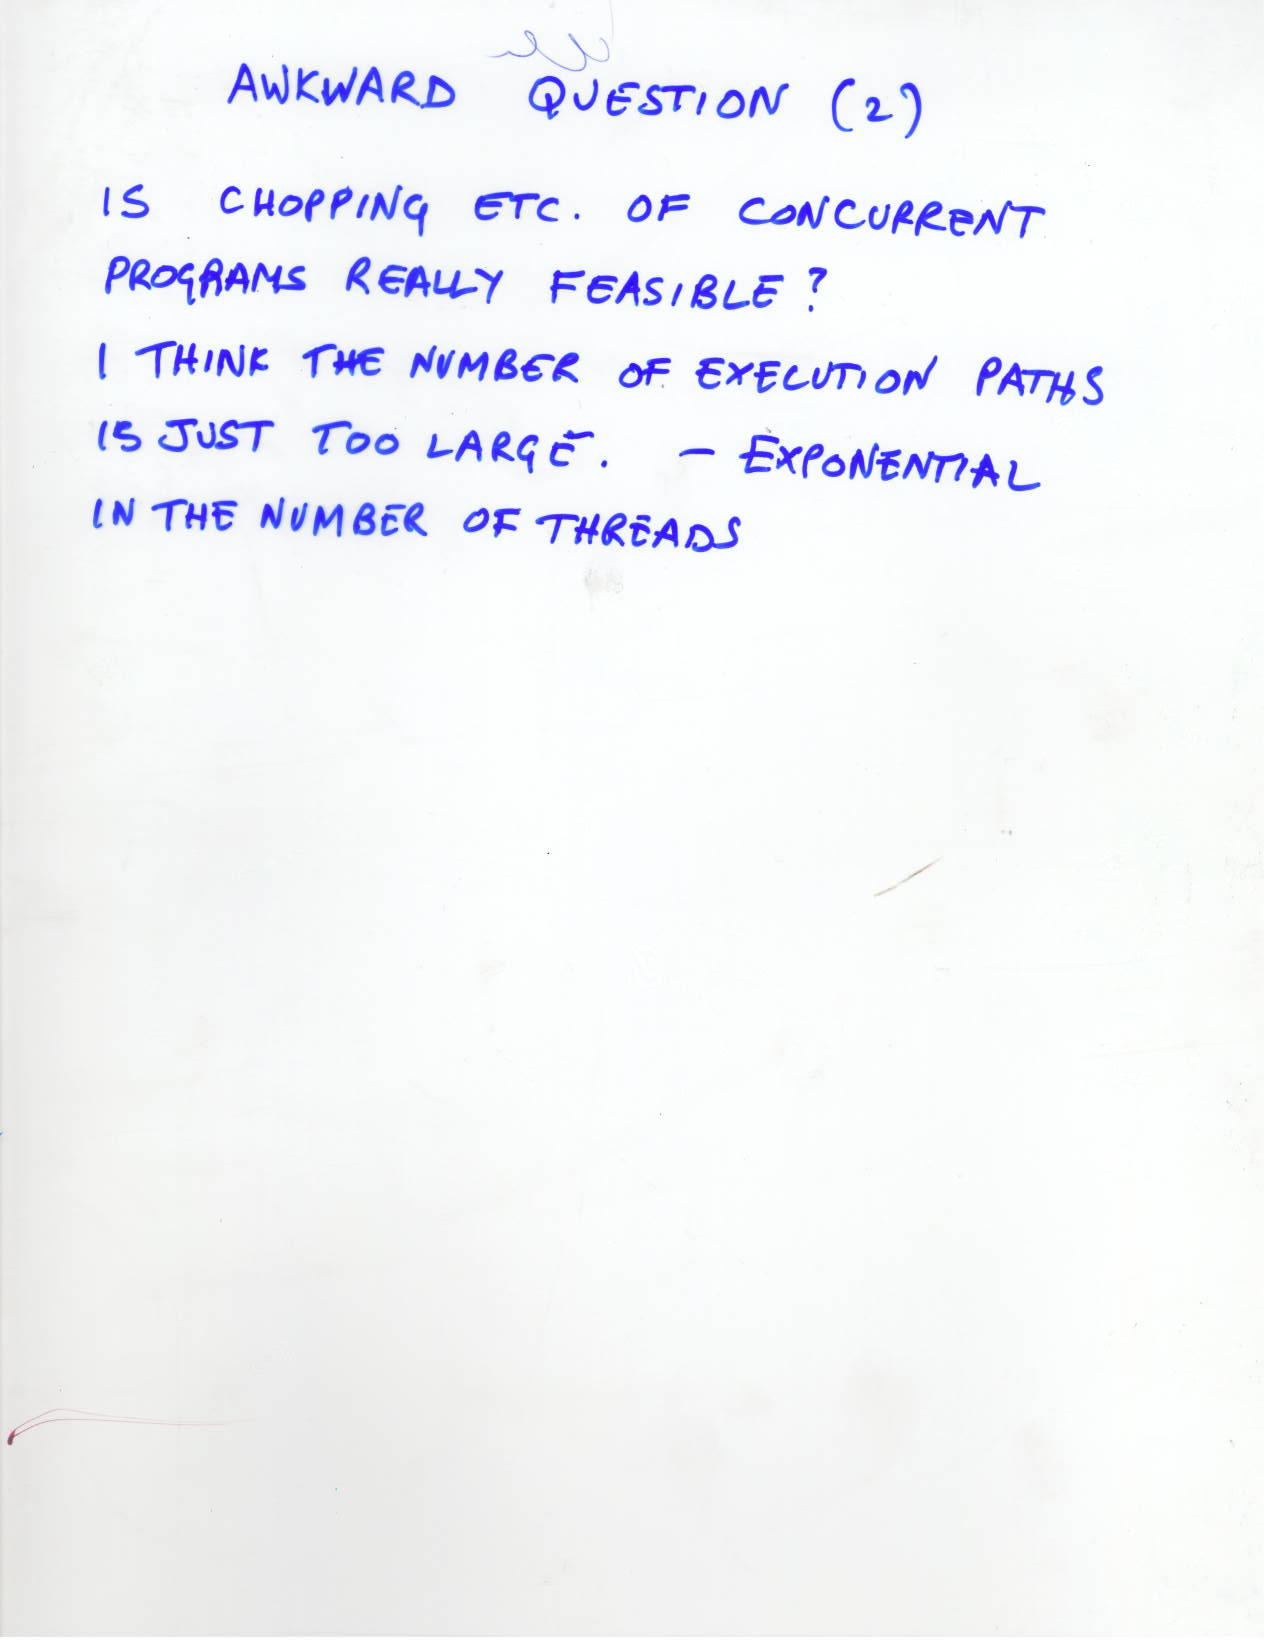 AWKWARD QUESTION (2)
IS CHOPPING ETC. OF CONCURRENT
PROGRAMS REALLY FEASIBLE?
I THINK THE NUMBER OF EXECUTION PATHS
IS JUST TOO LARGE. - EXPONENTIAL
IN THE NUMBER OF THREADS